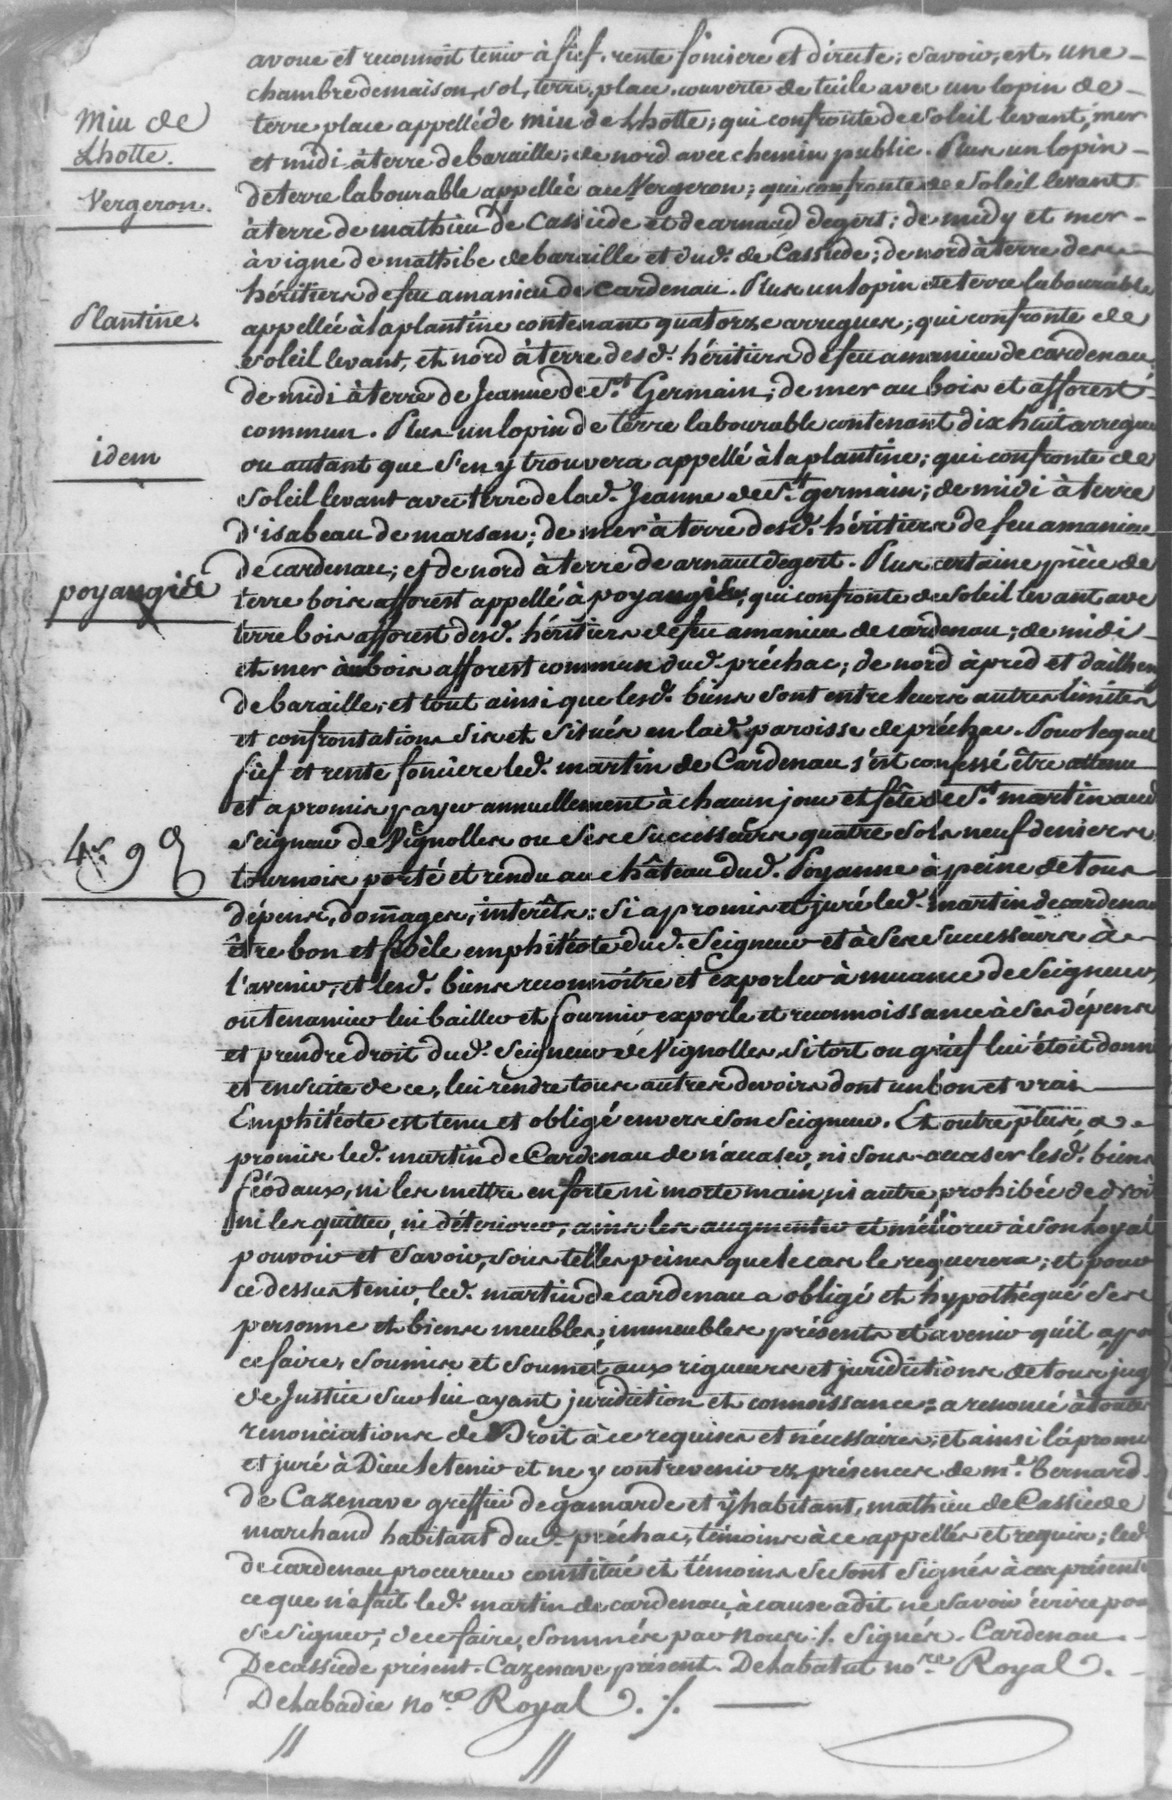 avoue et reconnoît tenir à fief, rente fonciere et directe; savoir, est, une
chambre de maison, sol, terre, place, couverte de tuile avec un lopin de
Miu de
Lhotte.
terre place appellé de miu de Lhotte; qui confronte de soleil levant, mer
et midi à terre de baraille; de nord avec chemin public. Plus un lopin
Vergeron.
de terre labourable appellée au Vergeron; qui confronte de soleil levant
à terre de mathieu de Cassiede et de arnaud degert; de midy et mer
à vigne de mathibe de baraille et dud. de Cassiede; de nord à terre des
héritiers de feu amanieu de Cardenau. Plus un lopin de terre labourable
Plantine.
appellée à la plantine contenant quatorze arregues; qui confronte de
soleil levant, et nord à terre desd. héritiers de feu amanieu de cardenau,
de midi à terre de Jeanne de St. Germain; de mer au bois et afforest
commun. Plus un lopin de terre labourable contenant dix huit arregues
idem
ou autant que s'en y trouvera appellé à la plantine; qui confronte de
soleil levant avec terre de lad. Jeanne de St. germain; de midi à terre
d'isabeau de marsan; de mer à terre desd. héritiers de feu amanieu
de cardenau; et de nord à terre de arnaut degert. Plus certaine pièce de
poyangiée
terre bois afforest appellé à poyangiée, qui confronte de soleil levant avec
terre bois afforest desd. héritiers de feu amanieu de cardenau; de midi
et mer au bois afforest commun dud. préchac; de nord à pred et dailhem
de baraille, et tout ainsi que lesd. biens sont entre leurs autres limites
et confrontations sis et situés en lad. paroisse de préchac. Pour lequel
fief et rente fonciere led. martin de Cardenau s'est confessé être attenu
et a promis payer annuellement à chacun jour et fête de St. martin aud.
seigneur de Vignolles ou ses successeurs quatre sols neuf deniers
4s 9d
tournois porté et rendu au château dud. Poyanne à peine de tous
dépens, dommages, interêts: si a promis et juré led. martin de cardenau
être bon et fidèle emphitéote dud. seigneur et à ses successeurs à
l'avenir, et lesd. biens reconnoître et exporler à muance de seigneur,
ou tenancier lui bailler et fournir exporle et reconnoissance à ses dépens
et prendre droit dud. seigneur de Vignolles si tort ou grief lui étoit donné
et ensuite de ce, lui rendre tous autres devoirs dont un bon et vrai
Emphitéote est tenu et obligé envers son seigneur. Et outre plus, a
promis led. martin de Cardenau de n'acaser, ni sous-acaser lesd. biens
féodaux, ni les mettre en forte ni morte main, ni autre prohibée de droit
ni les quitter, ni déteriorer, ains les augmenter et méliorer à son Loyal
pouvoir et savoir, sous telles peines que le cas le requerera; et pour
ce dessus tenir, led. martin de cardenau a obligé et hypothéqué ses
personne et biens meubles, immeubles présents et avenir qu'il a, pour
ce faire, soumis et soumet aux rigueurs et juridictions de tous juges
de Justice sur lui ayant juridiction et connoissance: a renoncé à toutes
renonciations de Droit à ce requises et nécessaires; et ainsi l'a promis
et juré à Dieu le tenir et ne y contrevenir ez présences de me. bernard
de Cazenave greffier de gamarde et y habitant, mathieu de Cassiede
marchand habitant dud. préchac, témoins à ce appellés et requis; led.
de cardenau procureur constitué et témoins se sont signés à ces présentes
ce que n'a fait led. martin de cardenau, à cause a dit ne savoir écrire pour
se signer, de ce faire, sommés par nous ./. signés. Cardenau
Decassiede présent. Cazenave présent. Dehabatut nore Royal.
Delabadie nore Royal ./.